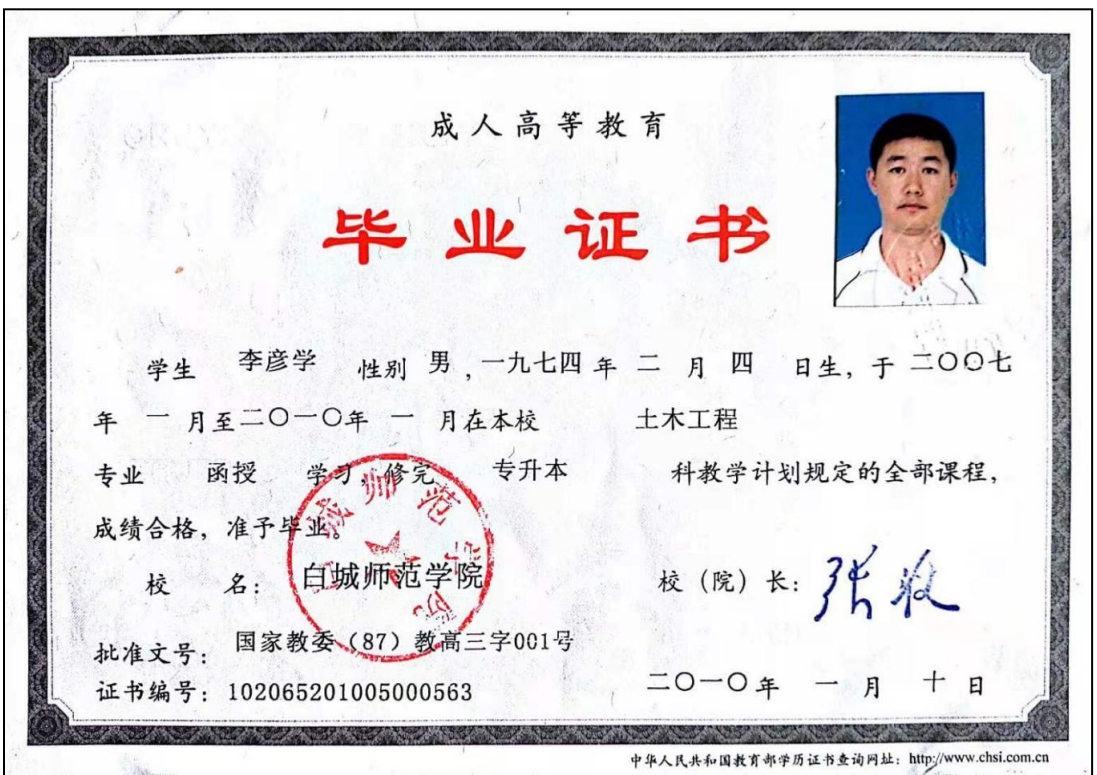 成人高等教育
毕业证书
学生 李彦学 性别 男，一九七四年 二 月 四 日生，于 二〇〇七
年 一 月至二〇一〇年 一 月在本校 土木工程
专业 函授 学习，修完 专升本 科教学计划规定的全部课程，
成绩合格，准予毕业。
校 名： 白城师范学院 校（院）长：
白城师范学院
批准文号： 国家教委（87）教高三字001号
证书编号：102065201005000563 二〇一〇年 一 月 十 日
中华人民共和国教育部学历证书查询网址：http://www.chsi.com.cn